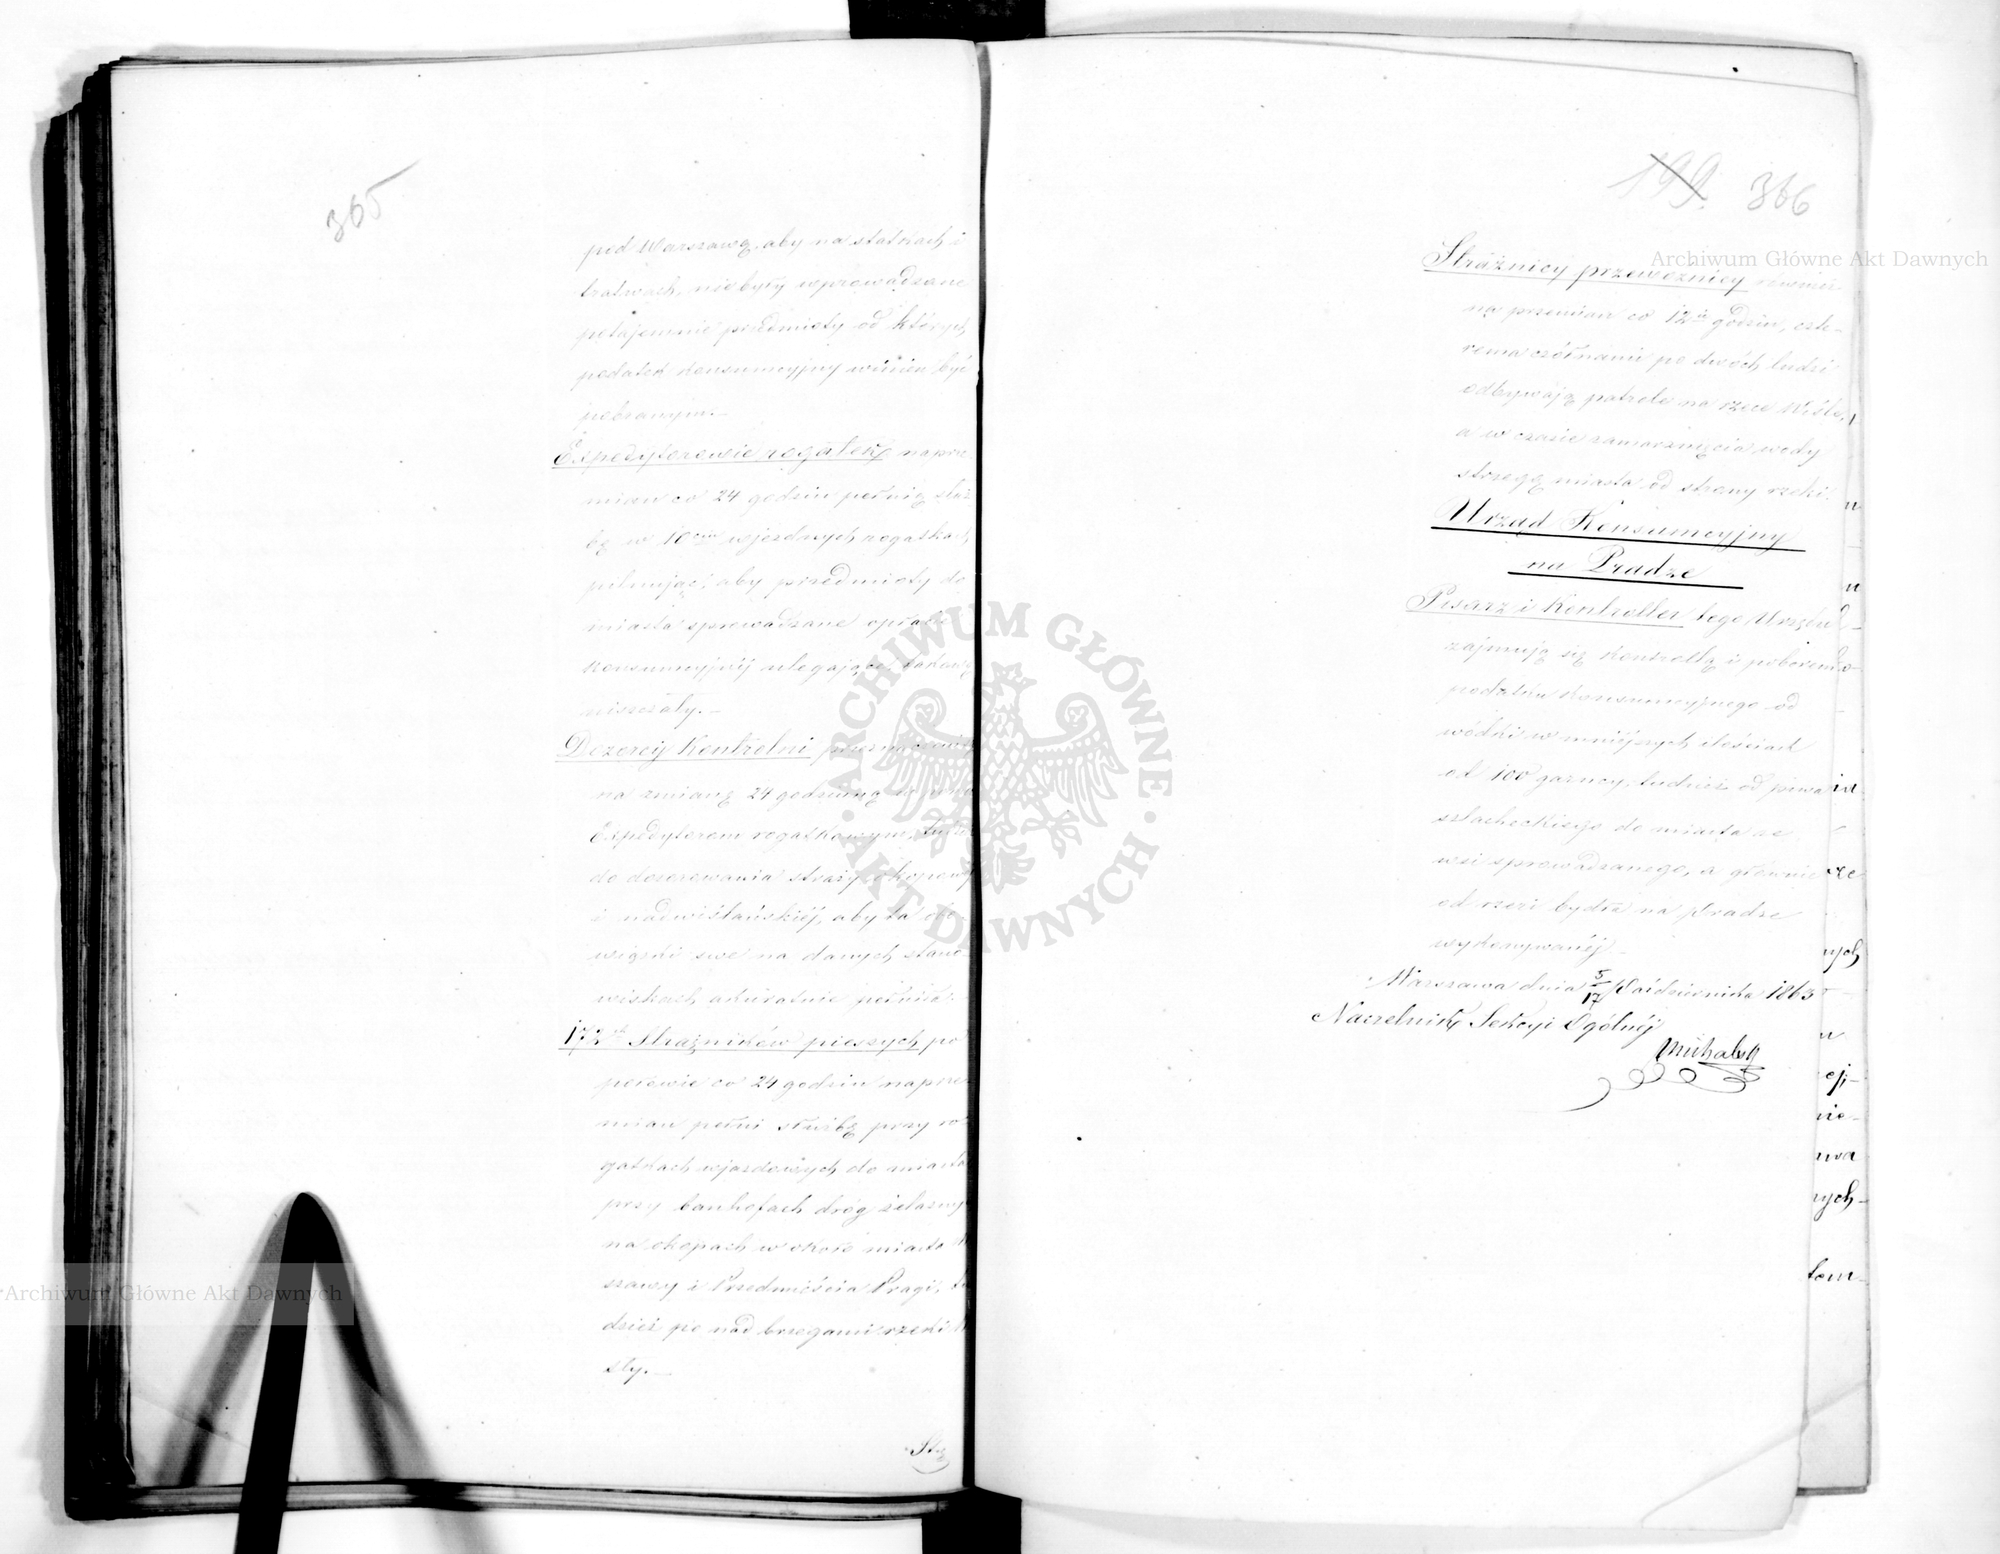 365
pod Warszawą, aby na statkach i
tratwach, niebyły wprowadzane
potajemnie przedmioty od których
podatek konsumcyjny winien być
pobranym.—
Expedytorowie rogatek naprze-
mian co 24 godzin pełnią służ
bę w 10ciu wjezdnych rogatkach
pilnując, aby przedmioty do
miasta sprowadzane opłacie
konsumcyjnéj ulegające, takową
uiszczały.—
Dozorcy Kontrolni
na zmianę 24 godzinną
Expedytorem rogatkowym, tudzież
do dozorowania straży okopowéj
i nadwiślańskiéj, aby ta obo-
wiązki swe na danych stano-
wiskach akuratnie pełniła.—
172ch Strażników pieszych po
połowie co 24 godzin naprze-
mian pełni służbę przy ro
gatkach wjazdowych do miasta
przy banhofach dróg żelaznych
na okopach w około miasta
szawy i Przedmieścia Pragi, tu
dzież po nad brzegami rzeki Wi
sły.—
199. 366
Strażnicy przewoźnicy również
na przemian co 12ie godzin, czte-
rema czółnami po dwóch ludzi
odbywają patrole na rzece Wiśle,
a w czasie zamarznięcia wody
strzegą miasta od strony rzeki.
Urząd Konsumcyjny
na Pradze
Pisarz i Kontroller tego Urzędu
zajmują się kontrollą i poborem
podatku konsumcyjnego od
wódki w mniéjszych ilościach
od 100 garncy, tudzież od piwa
szlacheckiego do miasta ze
wsi sprowadzanego, a głównie
od rzezi bydła na Pradze
wykonywanéj.—
Warszawa dnia 5/17 Października 1863 r.
Naczelnik Sekcyi Ogólnéj
Michalski
Archiwum Główne Akt Dawnych
Archiwum Główne Akt Dawnych
ARCHIWUM GŁÓWNE
AKT DAWNYCH